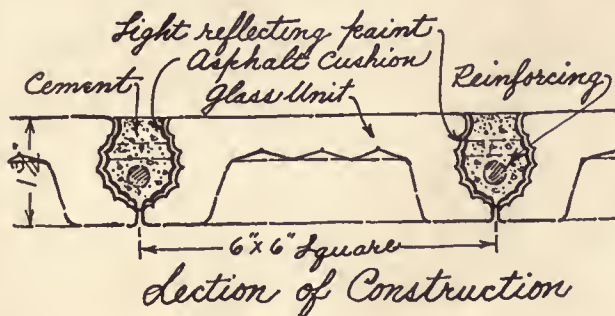 Light reflecting paint
Asphalt Cushion
Cement
Glass Unit
Reinforcing
6" x 6" Square
Section of Construction